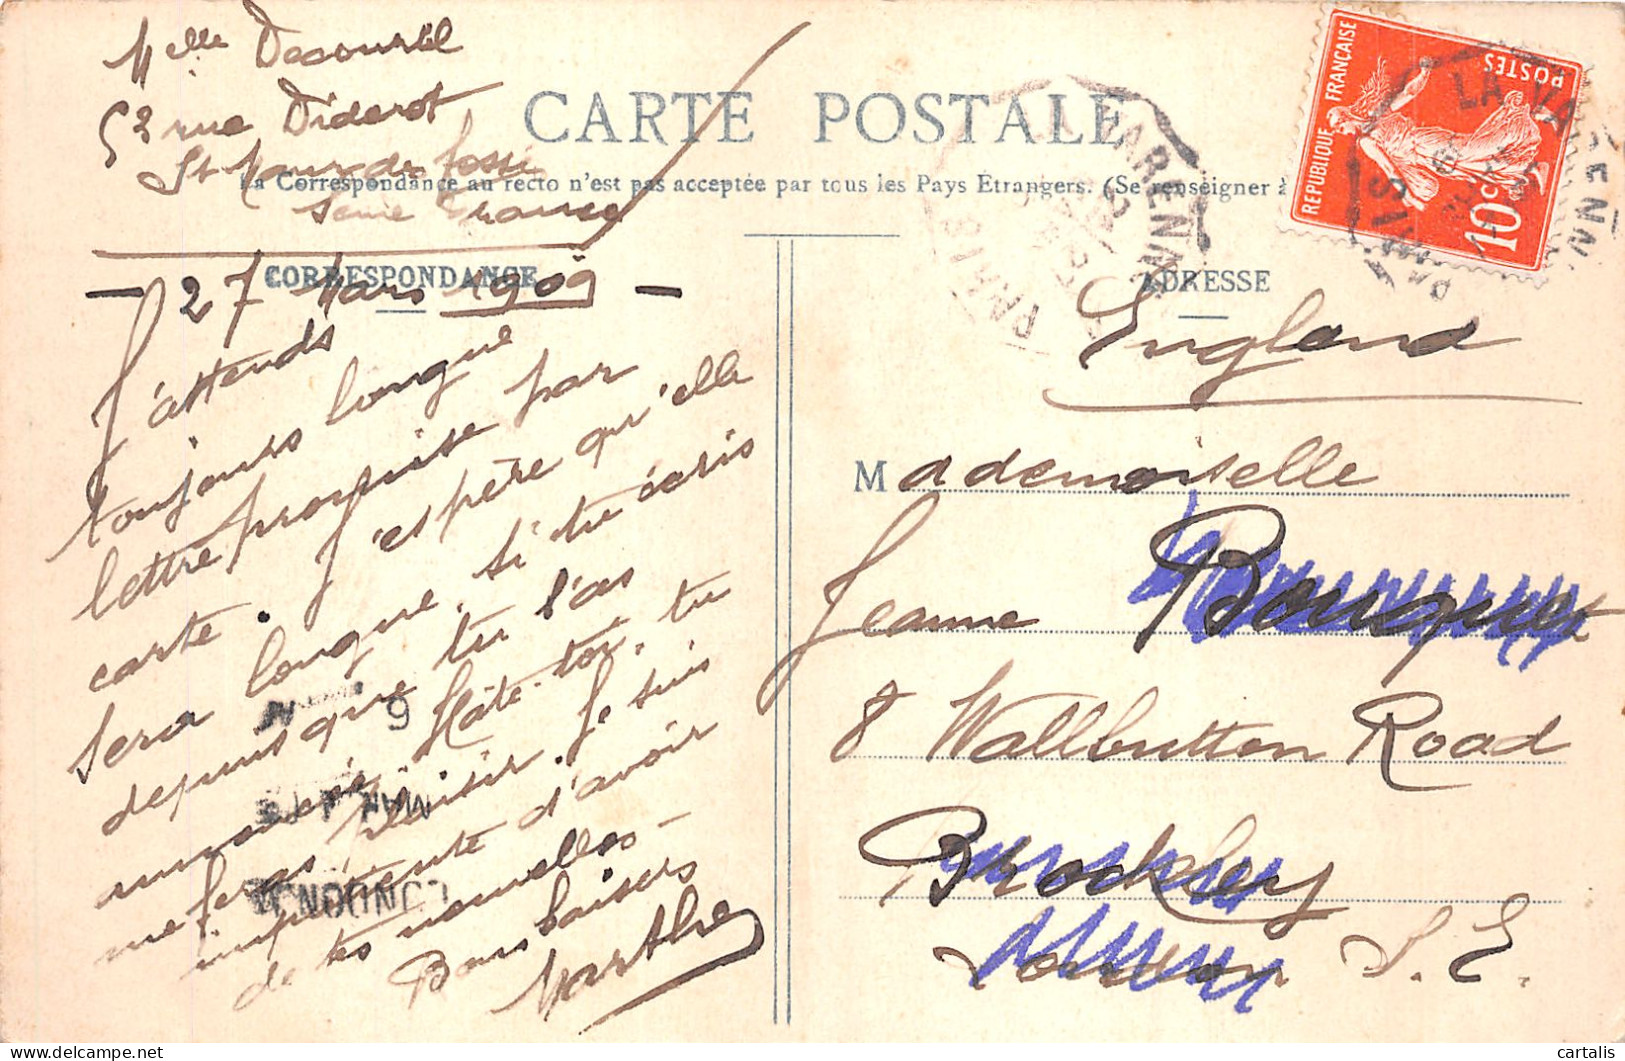 Melle Decourtil
52 rue Diderot
St Maur des Fossés
Seine France
CARTE POSTALE
La Correspondance au recto n'est pas acceptée par tous les Pays Étrangers. (Se renseigner à
CORRESPONDANCE
27 Mars 1909
J'attends
toujours longue
lettre promise par
carte. J'espère qu'elle
sera longue, si tu écris
depuis que tu l'as
Hâte-toi, tu
me feras plaisir. Je suis
impatiente d'avoir
de tes nouvelles -
Bons baisers
Marthe
ADRESSE
England
Mademoiselle
Jeanne Bousquet
8 Wallbutton Road
Brockley
London S.E.
REPUBLIQUE FRANÇAISE
POSTES
10c
LA VARENNE
PARIS
LA VARENNE
PARIS
LONDON
cartalis